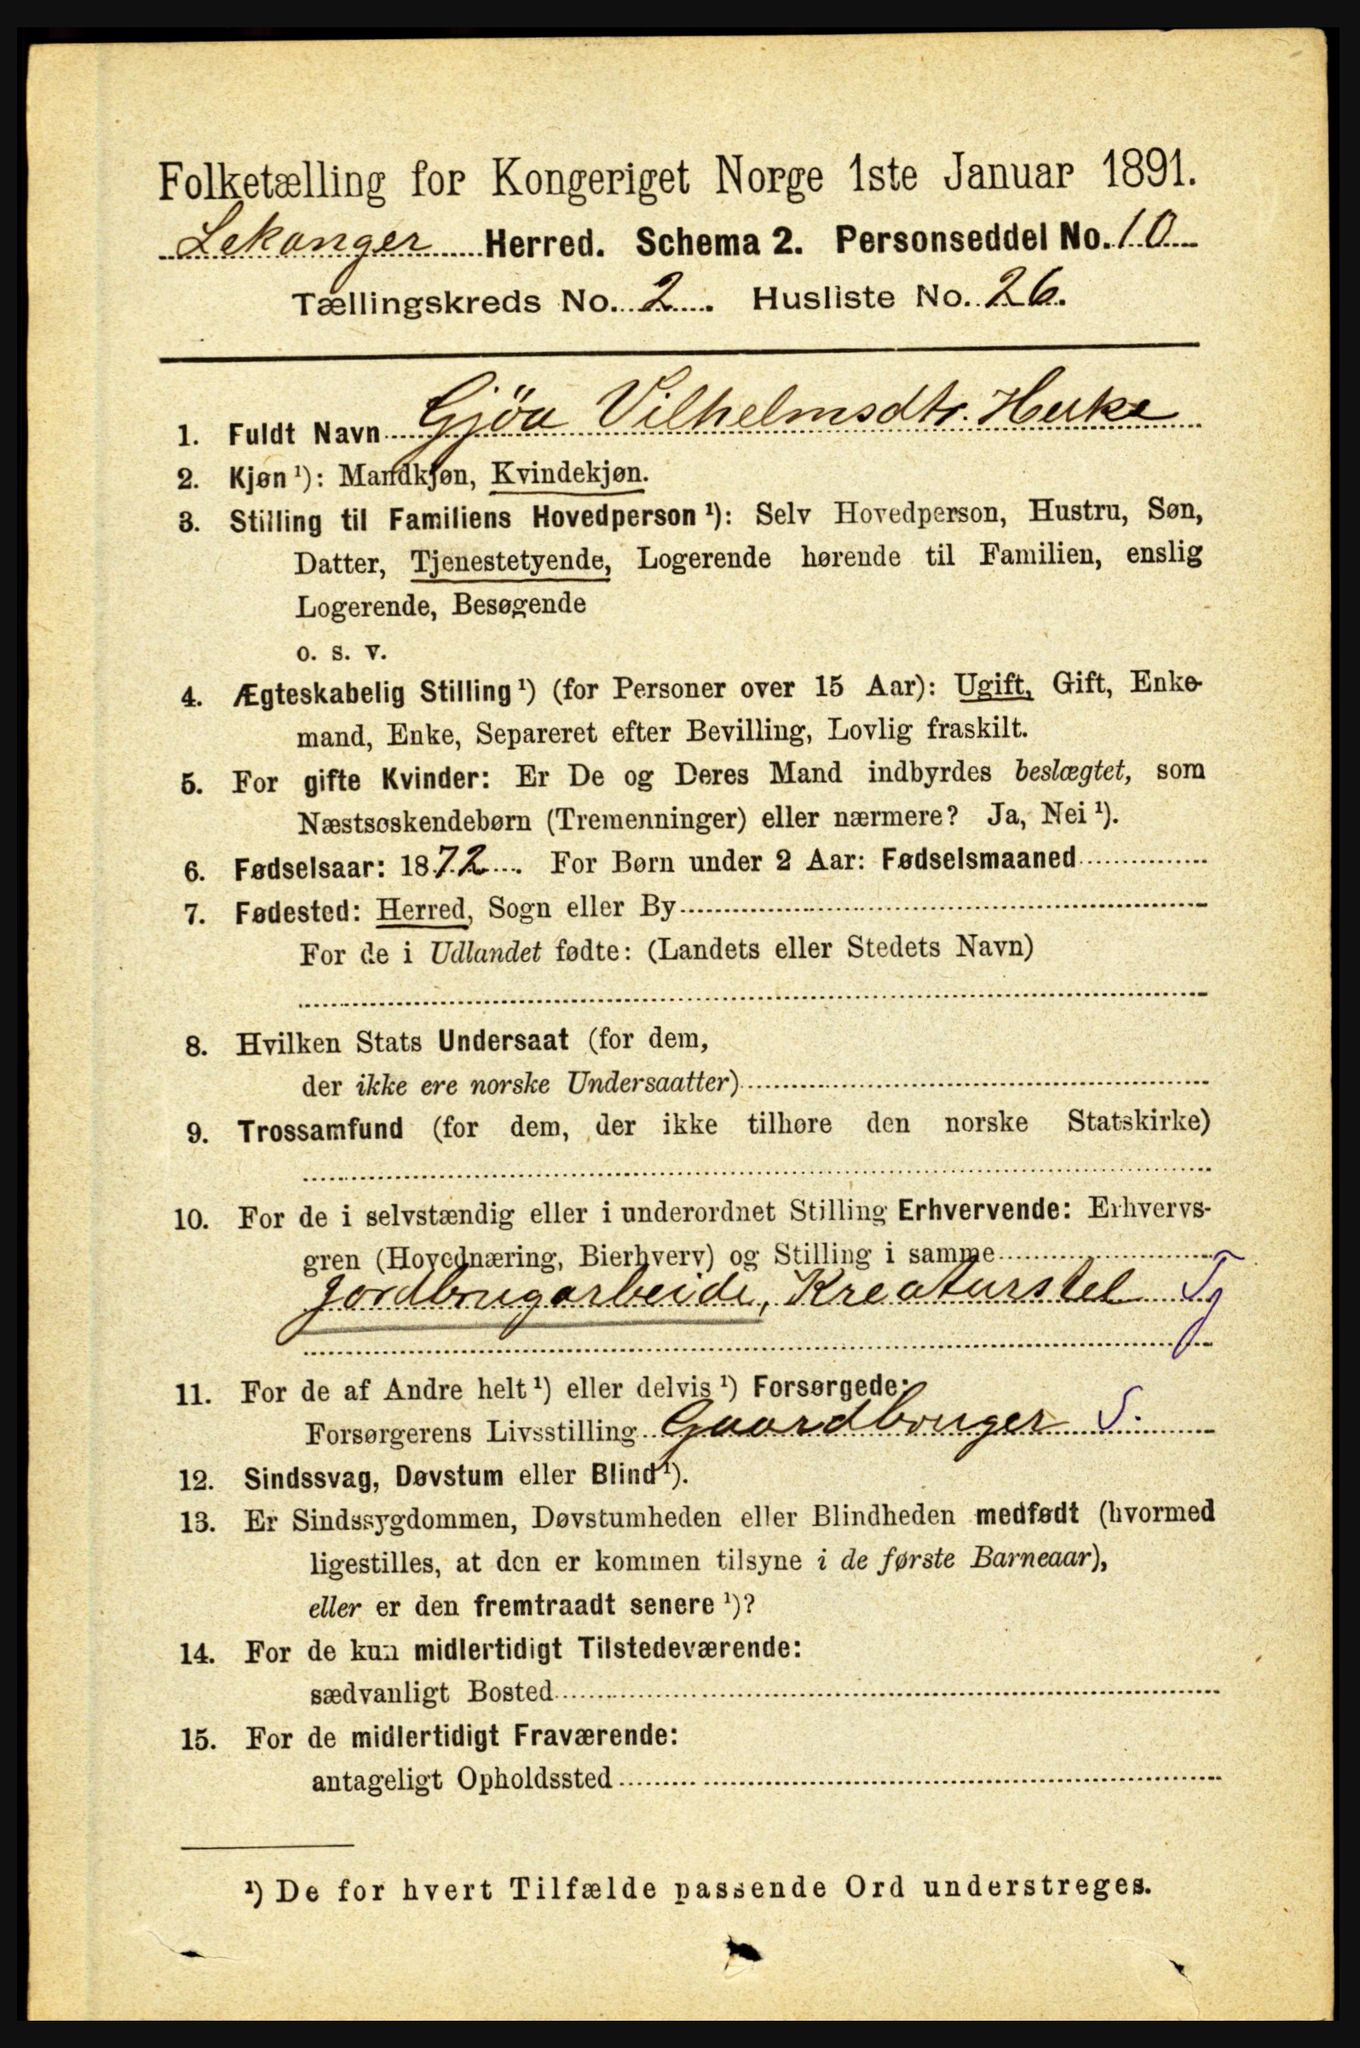 Folketælling for Kongeriget Norge 1ste Januar 1891.
Lekanger Herred. Schema 2. Personseddel No. 10
Tællingskreds No. 2. Husliste No. 26.
1. Fuldt Navn Gjöa Vilhelmsdtr. Huke
2. Kjøn ¹): Mandkjøn, Kvindekjøn.
3. Stilling til Familiens Hovedperson ¹): Selv Hovedperson, Hustru, Søn,
Datter, Tjenestetyende, Logerende hørende til Familien, enslig
Logerende, Besøgende
o. s. v.
4. Ægteskabelig Stilling ¹) (for Personer over 15 Aar): Ugift, Gift, Enke-
mand, Enke, Separeret efter Bevilling, Lovlig fraskilt.
5. For gifte Kvinder: Er De og Deres Mand indbyrdes beslægtet, som
Næstsøskendebørn (Tremenninger) eller nærmere? Ja, Nei ¹).
6. Fødselsaar: 1872. For Børn under 2 Aar: Fødselsmaaned
7. Fødested: Herred, Sogn eller By
For de i Udlandet fødte: (Landets eller Stedets Navn)
8. Hvilken Stats Undersaat (for dem,
der ikke ere norske Undersaatter)
9. Trossamfund (for dem, der ikke tilhøre den norske Statskirke)
10. For de i selvstændig eller i underordnet Stilling Erhvervende: Erhvervs-
gren (Hovednæring, Bierhverv) og Stilling i samme
Jordbrugarbeide, Kreaturstel Tj
11. For de af Andre helt ¹) eller delvis ¹) Forsørgede:
Forsørgerens Livsstilling Gaardbruger S.
12. Sindssvag, Døvstum eller Blind ¹).
13. Er Sindssygdommen, Døvstumheden eller Blindheden medfødt (hvormed
ligestilles, at den er kommen tilsyne i de første Barneaar),
eller er den fremtraadt senere ¹)?
14. For de kun midlertidigt Tilstedeværende:
sædvanligt Bosted
15. For de midlertidigt Fraværende:
antageligt Opholdssted
¹) De for hvert Tilfælde passende Ord understreges.